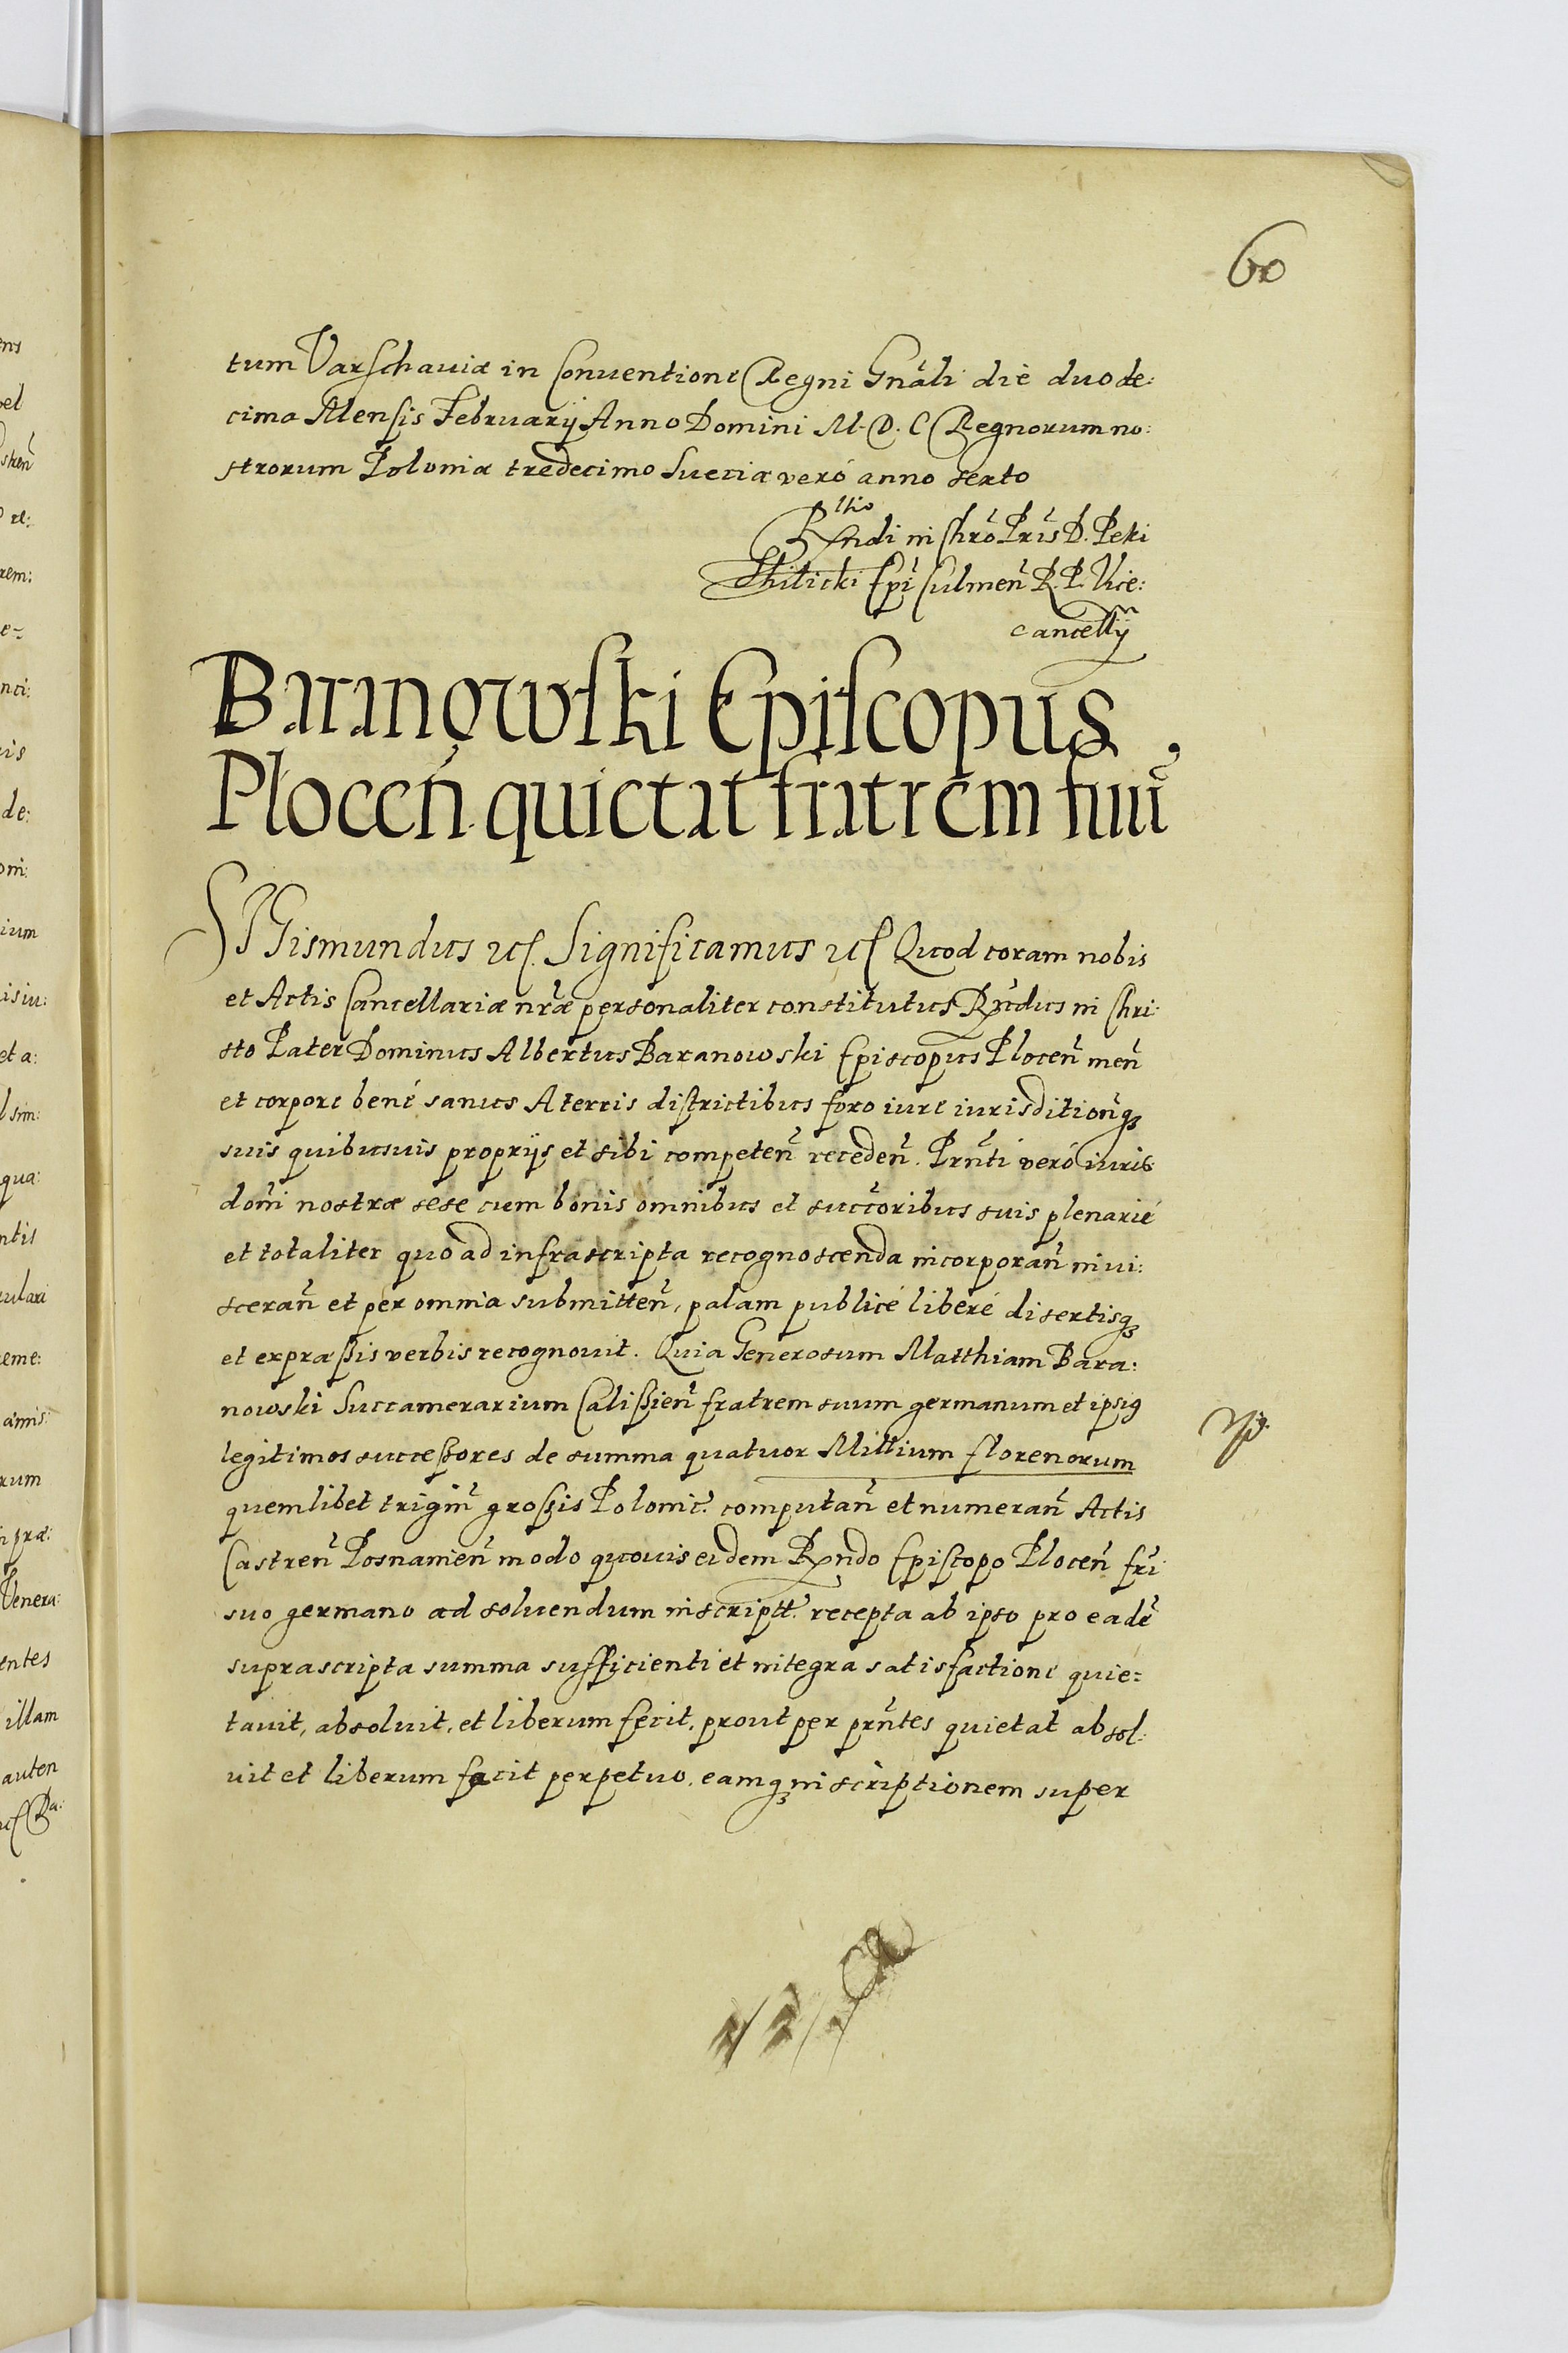 60
tum Varschauiæ in Conuentione Regni Gnãli die duode:
cima Mensis Februarÿ Anno Domini M. D. C Regnorum no:
strorum Poloniæ tredecimo Sueciæ veró anno sexto
Rndi in Chrõ Pris D. Petri
Tilicki Epi Culmeñ R. P. Vice:
cancellÿ
Baranowski Episcopus
Ploceñ quietat fratrem suũ
SIgismundus etc. Significamus etc Quod coram nobis
et Actis Cancellariæ nrãe personaliter constitutus Rñdus in Chri:
sto Pater Dominus Albertus Baranowski Episcopus Ploceñ meñ
et corpore bené sanus A terris districtibus foro iure iurisditionq3
suis quibusuis proprÿs et sibi competeñ recedeñ. Prñti veró iuris
doñi nostræ sese cum bonis omnibus et succoribus suis plenarié
et totaliter quo ad infrascripta recognoscenda incorporañ inui:
scerañ et per omnia submitteñ, palam publicé liberé disertisq3
et expræssis verbis recognouit. Quia Generosum Matthiam Bara:
nowski Succamerarium Calissieñ fratrem suum germanum et ipsig
legitimos successores de summa quatuor Millium florenorum
quemlibet trigiñ grossis Polonic. computañ et numerañ Actis
Castreñ Posnanieñ modo quouis eidem Rndo Episcopo Ploceñ fri
suo germano ad soluendum inscriptt. recepta ab ipso pro eadẽ
suprascripta summa sufficienti et integra satisfactione quie=
tauit, absoluit, et liberum fecit, prout per prñtes quietat absol:
uit et liberum facit perpetuo, eamq3 inscriptionem super